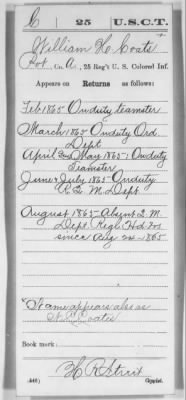 C 25 U.S.C.T.
William H. Coats
Pvt., Co. A., 25 Reg't U. S. Colored Inf.
Appears on Returns as follows:
Feb 1865 On duty teamster
March 1865 On duty Ord.
Dept
April and May 1865, On duty
Teamster
June & July 1865 On duty
Q. M. Dept
August 1865 Absent Q. M.
Dept. Regl. Hd
since Aug 24 - 1865
Name appears also as
Coates
Book mark:
(546) Copyist.